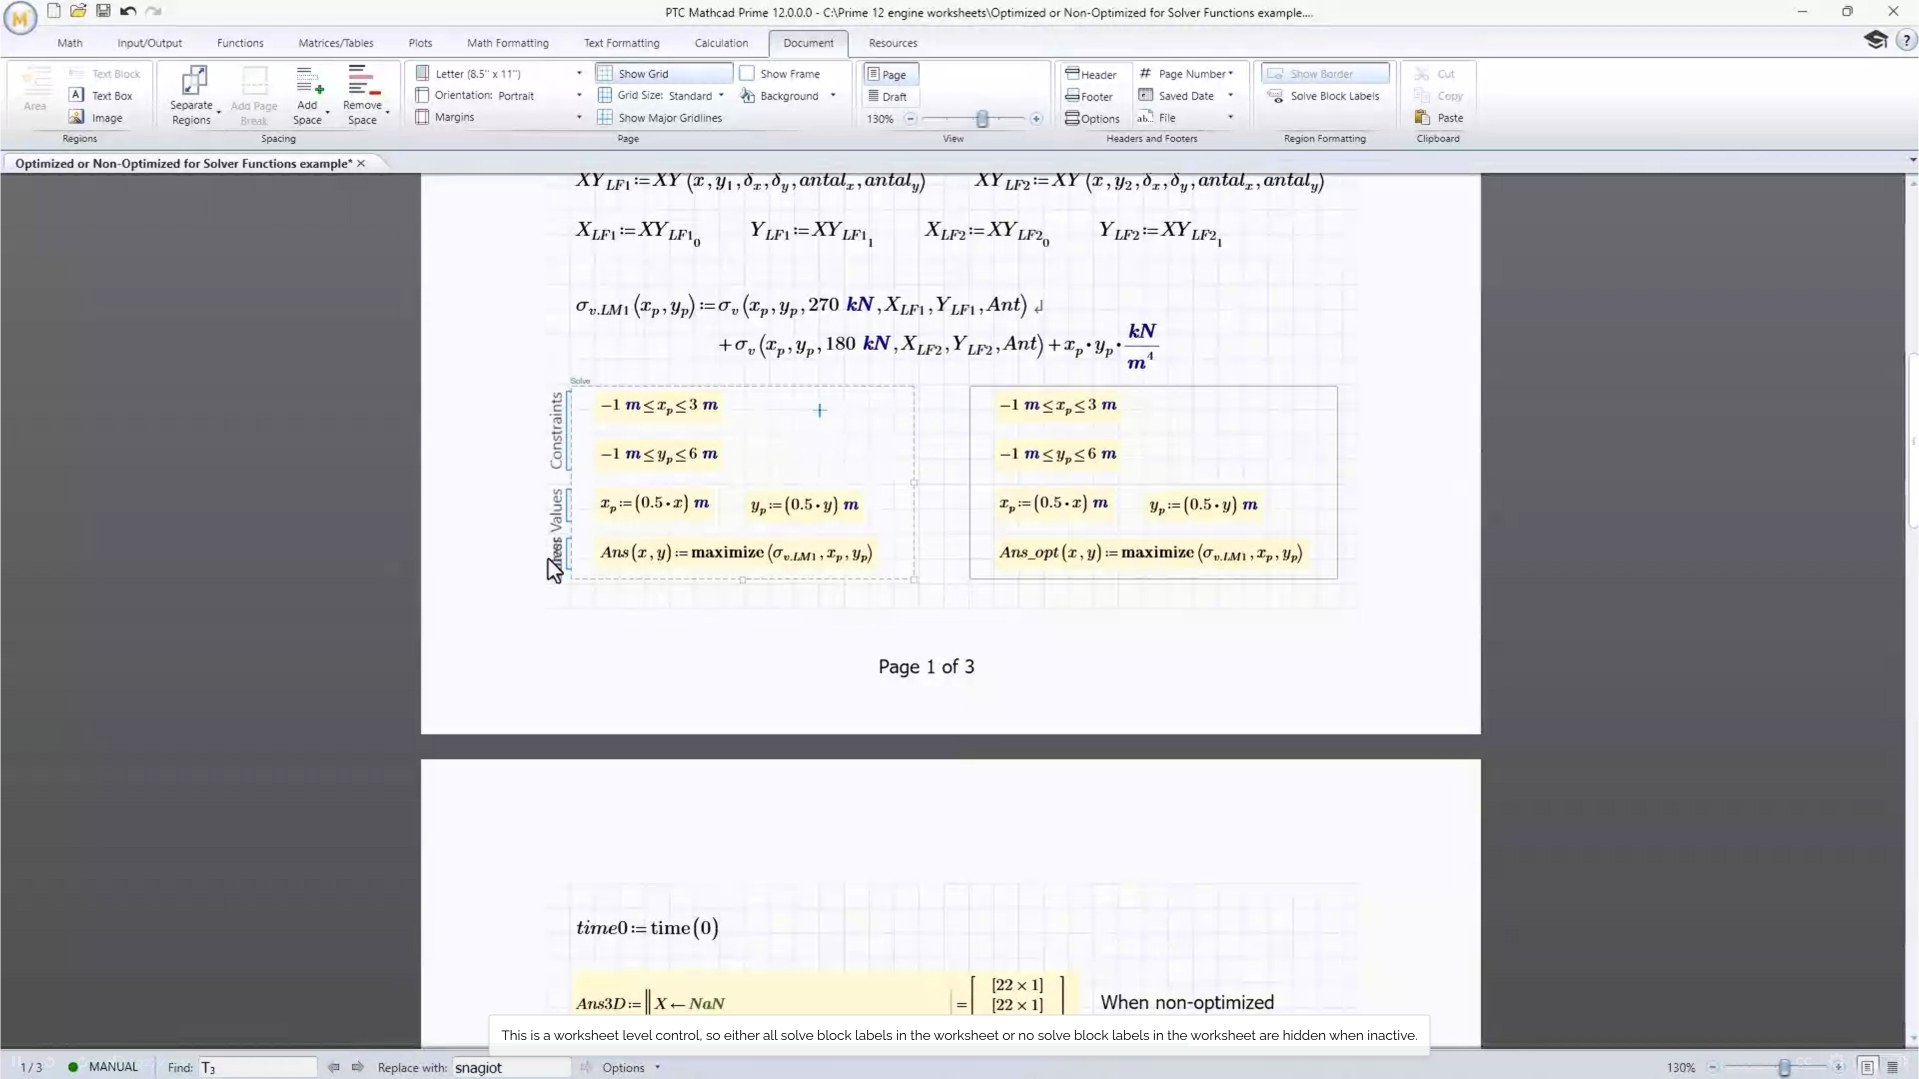 PTC Mathcad Prime 12.0.0.0 - C:\Prime 12 engine worksheets\Optimized or Non-Optimized for Solver Functions example....
Math Input/Output Functions Matrices/Tables Plots Math Formatting Text Formatting Calculation Document Resources
Area
Text Block
Text Box
Image
Regions
Separate Regions
Add Page Break
Add Space
Remove Space
Spacing
Letter (8.5" x 11")
Orientation: Portrait
Margins
Show Grid
Grid Size: Standard
Show Major Gridlines
Show Frame
Background
Page
Page
Draft
130%
View
Header
Footer
Options
Page Number
Saved Date
File
Headers and Footers
Show Border
Solve Block Labels
Region Formatting
Cut
Copy
Paste
Clipboard
Optimized or Non-Optimized for Solver Functions example*
XY LF1:=XY (x,y1,δx,δy,antalx,antaly) XY LF2:=XY (x,y2,δx,δy,antalx,antaly)
XLF1:=XYLF1₀ YLF1:=XYLF1₁ XLF2:=XYLF2₀ YLF2:=XYLF2₁
σv.LM1(xp,yp):=σv(xp,yp,270 kN,XLF1,YLF1,Ant)
+σv(xp,yp,180 kN,XLF2,YLF2,Ant)+xp·yp·kN/m⁴
Solve
Constraints
−1 m≤xp≤3 m
−1 m≤yp≤6 m
Values
xp:=(0.5·x) m yp:=(0.5·y) m
Ans(x,y):=maximize(σv.LM1,xp,yp)
−1 m≤xp≤3 m
−1 m≤yp≤6 m
xp:=(0.5·x) m yp:=(0.5·y) m
Ans_opt(x,y):=maximize(σv.LM1,xp,yp)
Page 1 of 3
time0:=time(0)
Ans3D:=‖X←NaN =[[22×1]
[22×1]]
When non-optimized
This is a worksheet level control, so either all solve block labels in the worksheet or no solve block labels in the worksheet are hidden when inactive.
1/3 MANUAL Find: T₃ Replace with: snagiot Options 130%